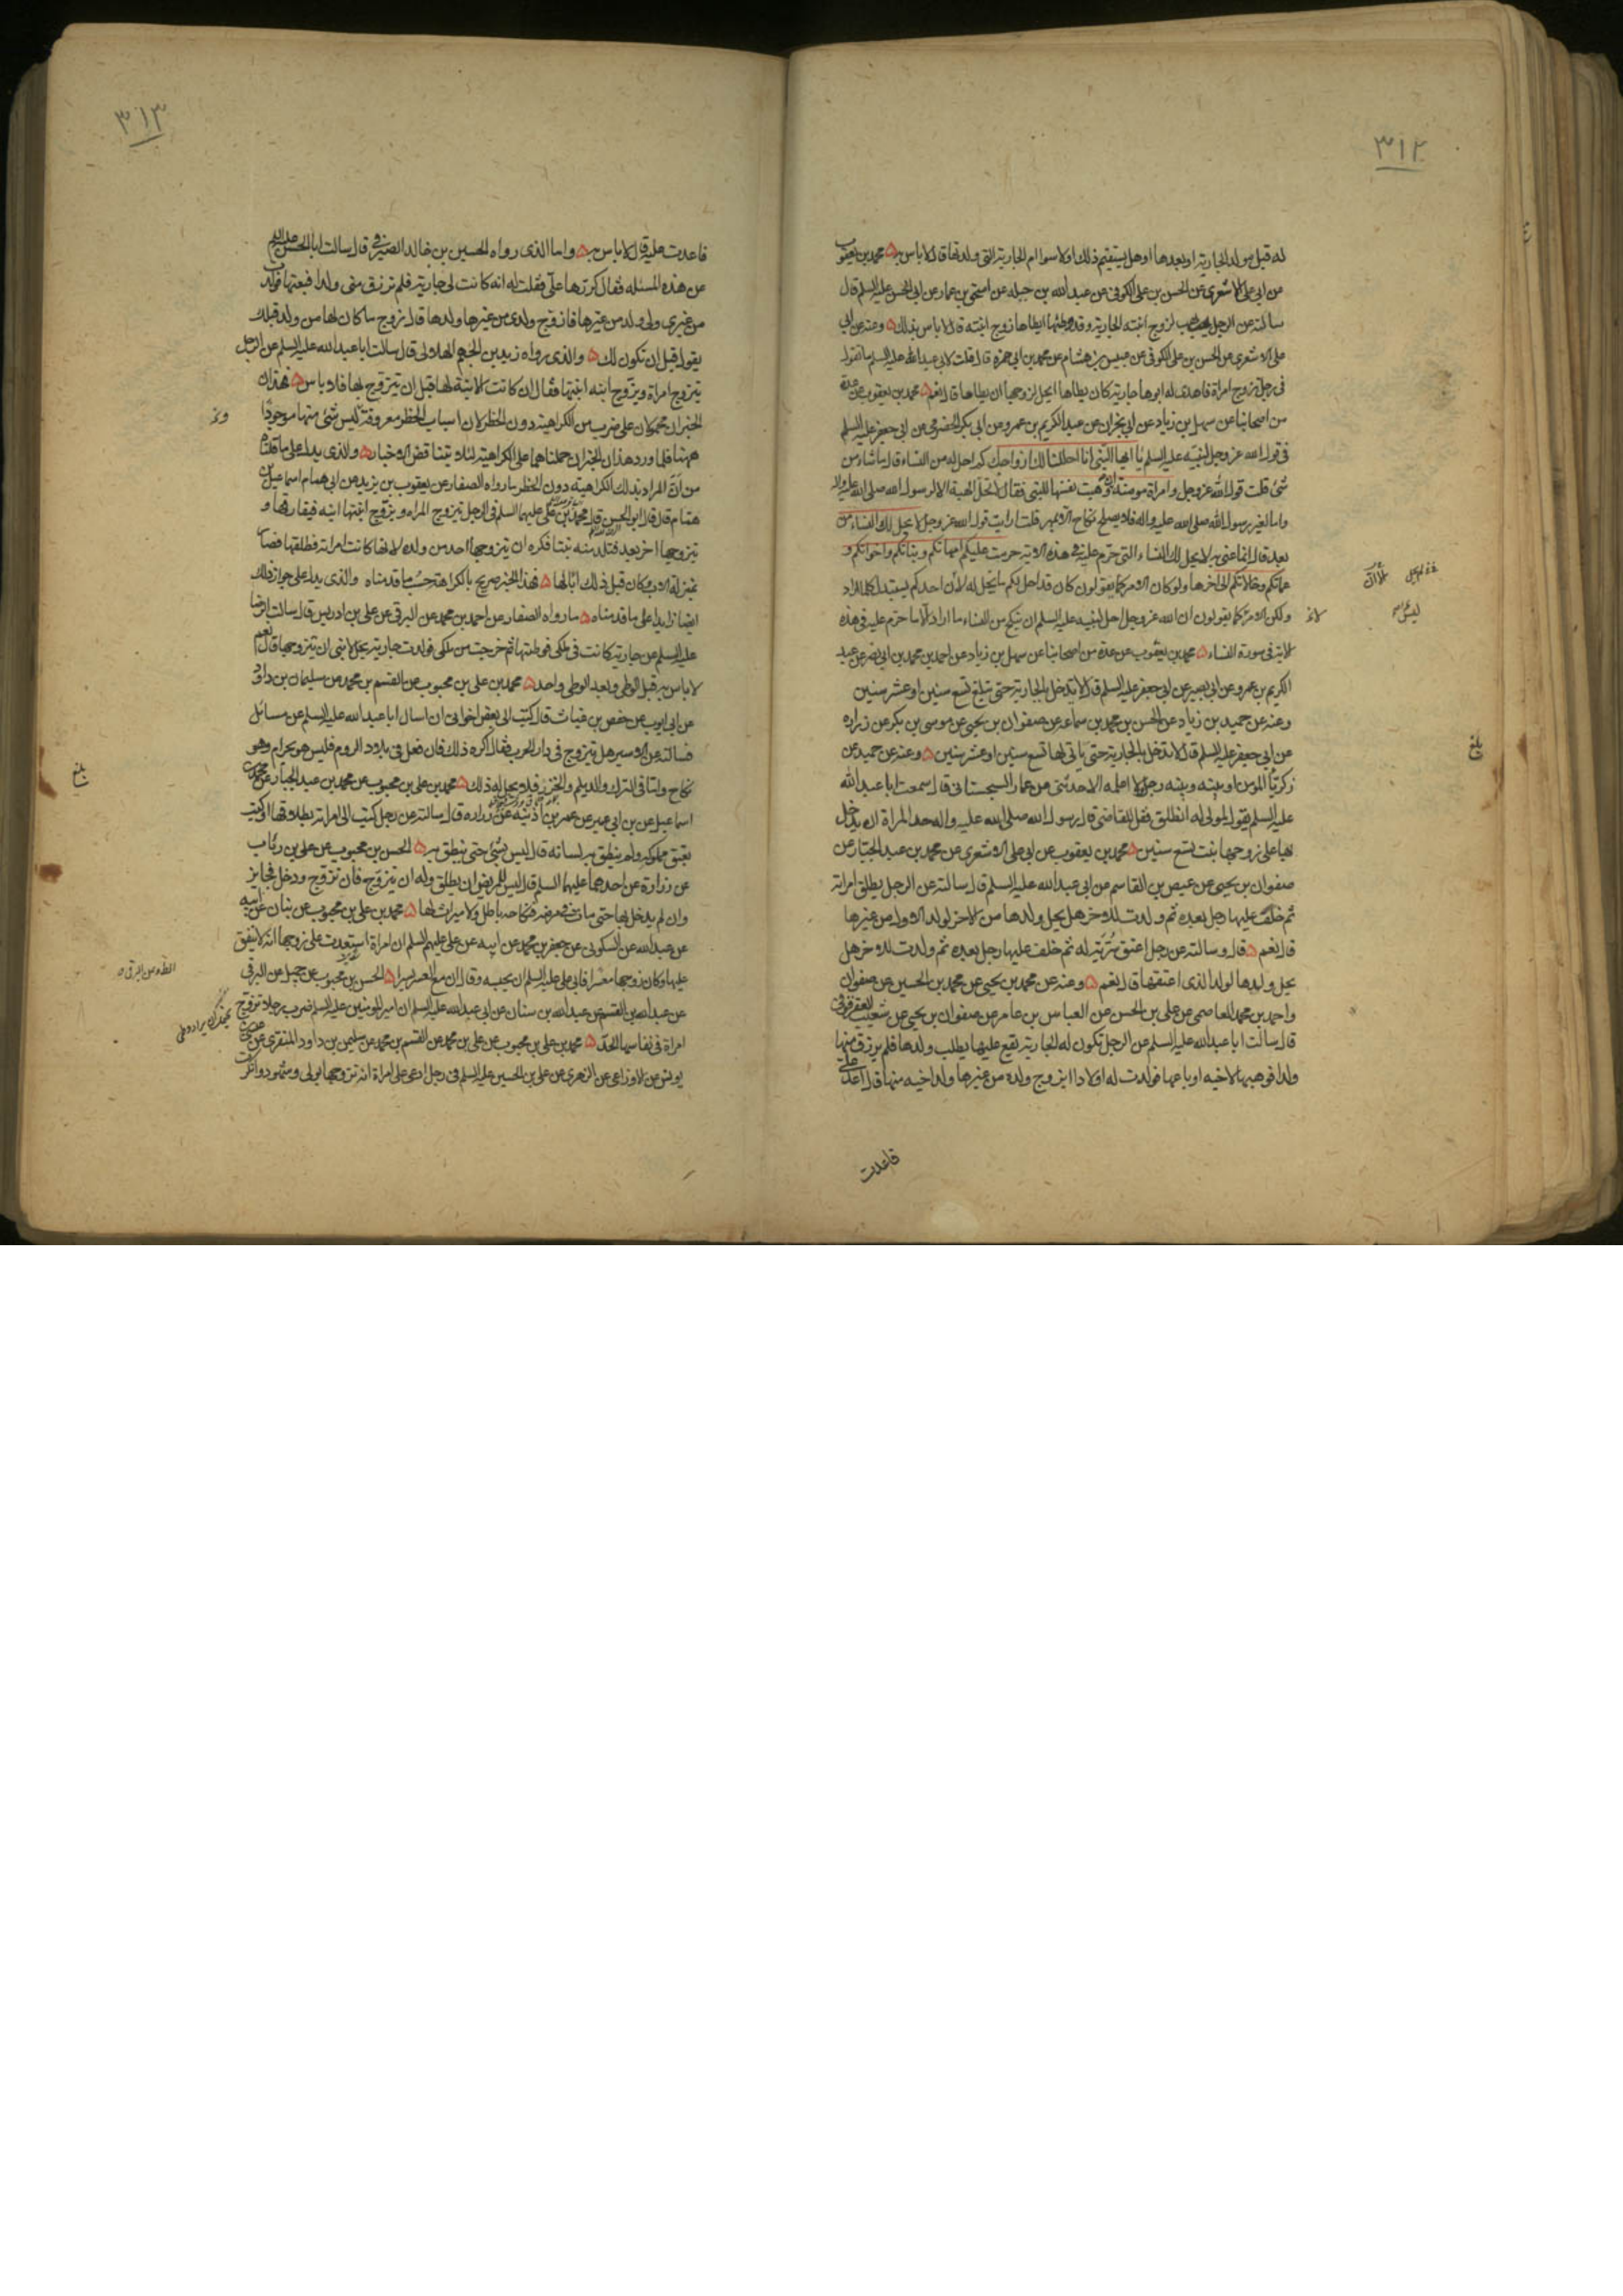 ٣١٢
له قبل مولد الجارية او بعدها او هل يستقيم ذلك اولا سوا ام الجارية التى ولدتها قال لا باس به محمد بن يعقوب
عن ابى على الاشعرى عن الحسن بن على الكوفى عن عبد الله بن جبله عن اسحق بن عمار عن ابى الحسن عليه السلم قال
سالته عن الرجل يهب لزوج ابنته الجارية وقد وطئها ايطاها زوج ابنته قال لا باس بذلك وعنه عن ابى
على الاشعرى عن الحسن بن على الكوفى عن عبيس بن هشام عن محمد بن ابى حمزه قال قلت لابى عبد الله عليه السلم ما تقول
فى رجل تزوج امراة فاهدى له ابوها جارية كان يطاها ايحل لزوجها ان يطاها قال نعم محمد بن يعقوب عن عدة
من اصحابنا عن سهل بن زياد عن ابى نجران عن عبد الكريم بن عمرو عن ابى بكر الحضرمى عن ابى جعفر عليه السلم
فى قول الله عز وجل لنبيه عليه السلم يا ايها النبى انا احللنا لك ازواجك كم احل له من النساء قال ما شاء من
شئ قلت قول الله عز وجل وامراة مومنة ان وهبت نفسها للنبى فقال لا تحل الهبة الا لرسول الله صلى الله عليه واله
واما لغير رسول الله صلى الله عليه واله فلا يصلح نكاح الا بمهر قلت ارايت قول الله عز وجل لا يحل لك النساء من
بعد قال انما عنى به لا يحل لك النساء التى حرم عليه فى هذه الاية حرمت عليكم امهاتكم وبناتكم واخواتكم و
عماتكم وخالاتكم الى اخرها ولو كان الامر كما يقولون كان قد احل لكم ما لم يحل له لان احدكم يستبدل كلما اراد
ولكن الامر كما يقولون ان الله عز وجل احل لنبيه عليه السلم ان ينكح من النساء ما اراد الا ما حرم عليه فى هذه
الاية فى سورة النساء محمد بن يعقوب عن عدة من اصحابنا عن سهل بن زياد عن احمد بن محمد بن ابى نصر عن عبد
الكريم بن عمرو عن ابى بصير عن ابى جعفر عليه السلم قال لا يدخل بالجارية حتى تبلغ تسع سنين او عشر سنين
وعنه عن حميد بن زياد عن الحسن بن محمد بن سماعه عن صفوان بن يحيى عن موسى بن بكر عن زراره
عن ابى جعفر عليه السلم قال لا تدخل بالجارية حتى ياتى لها تسع سنين او عشر سنين وعنه عن حميد عن
زكريا المومن او بينه وبينه رجل لا اعلمه الا حدثنى عن عمار السجستانى قال سمعت ابا عبد الله
عليه السلم يقول لمولى له انطلق فقل للقاضى قال رسول الله صلى الله عليه واله حد المراة ان يدخل
بها على زوجها بنت تسع سنين محمد بن يعقوب عن ابى على الاشعرى عن محمد بن عبد الجبار عن
صفوان بن يحيى عن عيص بن القاسم عن ابى عبد الله عليه السلم قال سالته عن الرجل يطلق امراته
ثم خلف عليها رجل بعده ثم ولدت للاخر هل يحل ولدها من الاخر لولد الاول من غيرها
قال نعم قال وسالته عن رجل اعتق سُرّيّة له ثم خلف عليها رجل بعده ثم ولدت للاخر هل
يحل ولدها لولد الذى اعتقها قال نعم وعنه عن محمد بن يحيى عن محمد بن الحسين عن صفوان
واحمد بن محمد العاصمى عن على بن الحسن عن العباس بن عامر عن صفوان بن يحيى عن شعيب العقرقوفى
قال سالت ابا عبد الله عليه السلم عن الرجل تكون له الجارية يقع عليها يطلب ولدها فلم يرزق منها
ولدا فوهبها لاخيه او باعها فولدت له اولادا ايزوج ولده من غيرها ولد اخيه منها قال اعد على
فاعدت
بلغ
٣١٣
فاعدت عليه قال لا باس به واما الذى رواه الحسين بن خالد الصيرفى قال سالت ابا الحسن عليه السلم
عن هذه المسئله فقال كررها على فقلت له انه كانت لى جارية فلم ترزق منى ولدا فبعتها فولدت
من غيرى ولى ولد من غيرها فازوج ولدى من غيرها ولدها قال تزوج ما كان لها من ولد قبلك
يقول قبل ان تكون لك والذى رواه زيد بن الجهم الهلالى قال سالت ابا عبد الله عليه السلم عن الرجل
يتزوج امراة ويزوج ابنه ابنتها فقال ان كانت الابنة لها قبل ان يتزوج بها فلا باس فهذان
الخبران محمولان على ضرب من الكراهية دون الحظر لان اسباب الحظر معروفة ليس شئ منها موجودا
ههنا فلما ورد هذان الخبران حملناهما على الكراهية لئلا يتناقض الاخبار والذى يدل على ما قلناه
من ان المراد بذلك الكراهية دون الحظر ما رواه الصفار عن يعقوب بن يزيد عن ابى همام اسماعيل بن
همام قال قال ابو الحسن قال محمد بن على عليهما السلم فى الرجل يتزوج المراه ويزوج ابنتها ابنه فيفارقها و
يتزوجها اخر بعد فتلد منه بنتا فكره ان يتزوجها احد من ولده لانها كانت امراته فطلقها فصار
بمنزلة الاب وكان قبل ذلك ابا لها فهذا الخبر صريح بالكراهة حسب ما قدمناه والذى يدل على جواز ذلك
ايضا زايدا على ما قدمناه ما رواه الصفار عن احمد بن محمد عن البرقى عن على بن ادريس قال سالت الرضا
عليه السلم عن جارية كانت فى ملكى فوطئتها ثم خرجت من ملكى فولدت جارية يحل لابنى ان يتزوجها قال نعم
لا باس به قبل الوطى وبعد الوطى واحد محمد بن على بن محبوب عن القسم بن محمد عن سليمان بن داود
عن ابى ايوب عن حفص بن غياث قال كتب الى بعض اخوانى ان اسال ابا عبد الله عليه السلم عن مسائل
فسالته عن الاسير هل يتزوج فى دار الحرب فقال اكره ذلك فان فعل فى بلاد الروم فليس هو بحرام وهو
نكاح واما فى الترك والديلم والخزر فلا يحل له ذلك محمد بن على بن محبوب عن محمد بن عبد الجبار عن محمد بن
اسماعيل عن بن ابى عمير عن عمر بن اذينه عن زراره قال سالته عن رجل كتب الى امراته بطلاقها او كتب
بعتق مملوكه ولم ينطق به لسانه قال ليس بشئ حتى ينطق به الحسن بن محبوب عن على بن رئاب
عن زرارة عن احدهما عليهما السلم قال ليس للمريض ان يطلق وله ان يتزوج فان تزوج ودخل بها فجايز
وان لم يدخل بها حتى مات فى مرضه فنكاحه باطل ولا ميراث لها محمد بن على بن محبوب عن بنان عن ابيه
عن عبد الله عن السكونى عن جعفر بن محمد عن ابيه عن على عليهم السلم ان امراة استعدت على زوجها انه لا ينفق
عليها وكان زوجها معسرا فابى على عليه السلم ان يحبسه وقال ان مع العسر يسرا الحسن بن محبوب عن جميل عن البرقى
عن عبد الله بن القسم عن عبد الله بن سنان عن ابى عبد الله عليه السلم ان امير المومنين عليه السلم ضرب رجلا تزوج
امراة فى نفاسها الحد محمد بن على بن محبوب عن على بن محمد عن القسم بن محمد عن سليمن بن داود المنقرى عن عيسى بن
يونس عن الاوزاعى عن الزهرى عن على بن الحسين عليه السلم فى رجل ادعى على امراة انه تزوجها بولى وشهود وانكرت
بلغ